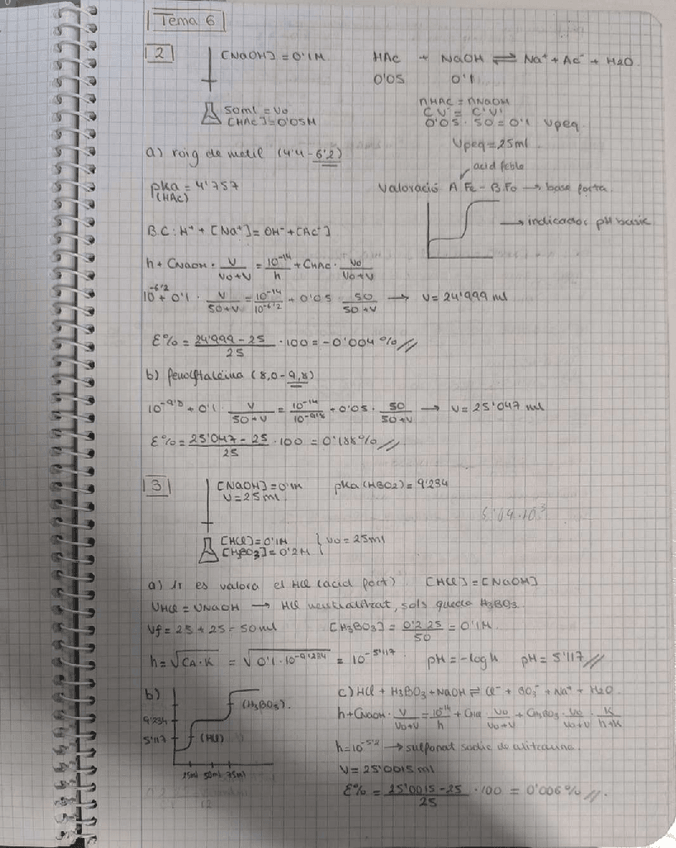 Tema 6
2
[NaOH] = 0'1M
HAc + NaOH ⇌ Na⁺ + Ac⁻ + H2O
0'05 0'1
50ml = V0
[HAc] = 0'05M
nHAC = nNaOH
CV = C'V'
0'05 · 50 = 0'1 Vpeq
Vpeq = 25ml
a) roig de metil (4'4 - 6'2)
acid feble
pka = 4'757
(HAc)
Valoració A.Fe - B.Fo → base forta
→ indicador pH basic
B.C: H⁺ + [Na⁺] = OH⁻ + [Ac⁻]
h + CNaOH · V/(V0+V) = 10⁻¹⁴/h + CHAc · V0/(V0+V)
10^-6'2 + 0'1 · V/(50+V) = 10⁻¹⁴/10^-6'2 + 0'05 · 50/(50+V) → V = 24'999 ml
ε% = (24'999 - 25)/25 · 100 = -0'004 % //
b) fenolftaleïna (8,0 - 9,8)
10^-9'8 + 0'1 V/(50+V) = 10⁻¹⁴/10^-9'8 + 0'05 · 50/(50+V) → V = 25'047 ml
ε% = (25'047 - 25)/25 · 100 = 0'188 % //
3
[NaOH] = 0'1M
V = 25ml
pka (HBO2) = 9'234
[HCl] = 0'1M
[H3BO3] = 0'2M
} V0 = 25ml
a) 1r es valora el HCl (acid fort) [HCl] = [NaOH]
VHCl = VNaOH → HCl neutralitzat, sols queda H3BO3
Vf = 25 + 25 = 50ml [H3BO3] = 0'2·25/50 = 0'1M
h = √(CA·K) = √(0'1 · 10^-9'234) = 10^-5'117 pH = -log h pH = 5'117 //
b)
(H3BO3)
9'234
5'117
(HCl)
25ml 50ml 75ml
c) HCl + H3BO3 + NaOH ⇌ Cl⁻ + BO2⁻ + Na⁺ + H2O
h + CNaOH · V/(V0+V) = 10⁻¹⁴/h + CHCl · V0/(V0+V) + CH3BO3 · V0/(V0+V) · K/(h+K)
h = 10^-5'2 → sulfonat sodic de alitzarina
V = 25'0015 ml
ε% = (25'0015 - 25)/25 · 100 = 0'006 % //